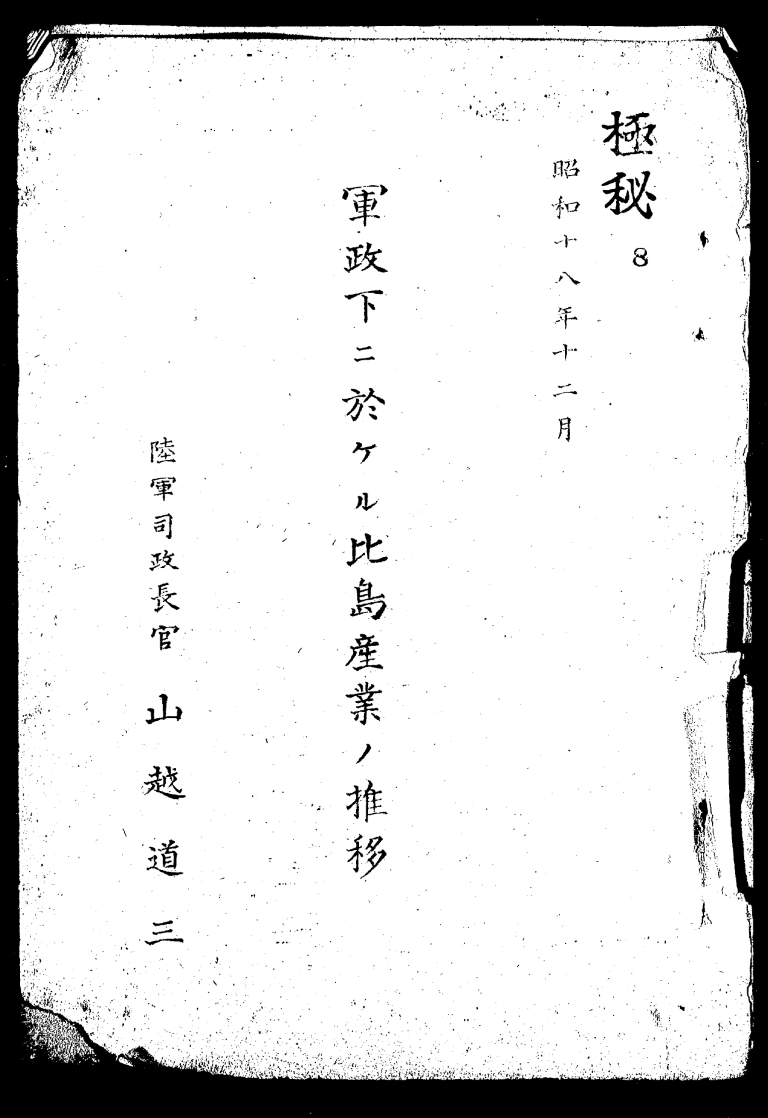 極秘
8
昭和十八年十二月
軍政下ニ於ケル比島産業ノ推移
陸軍司政長官 山越道三